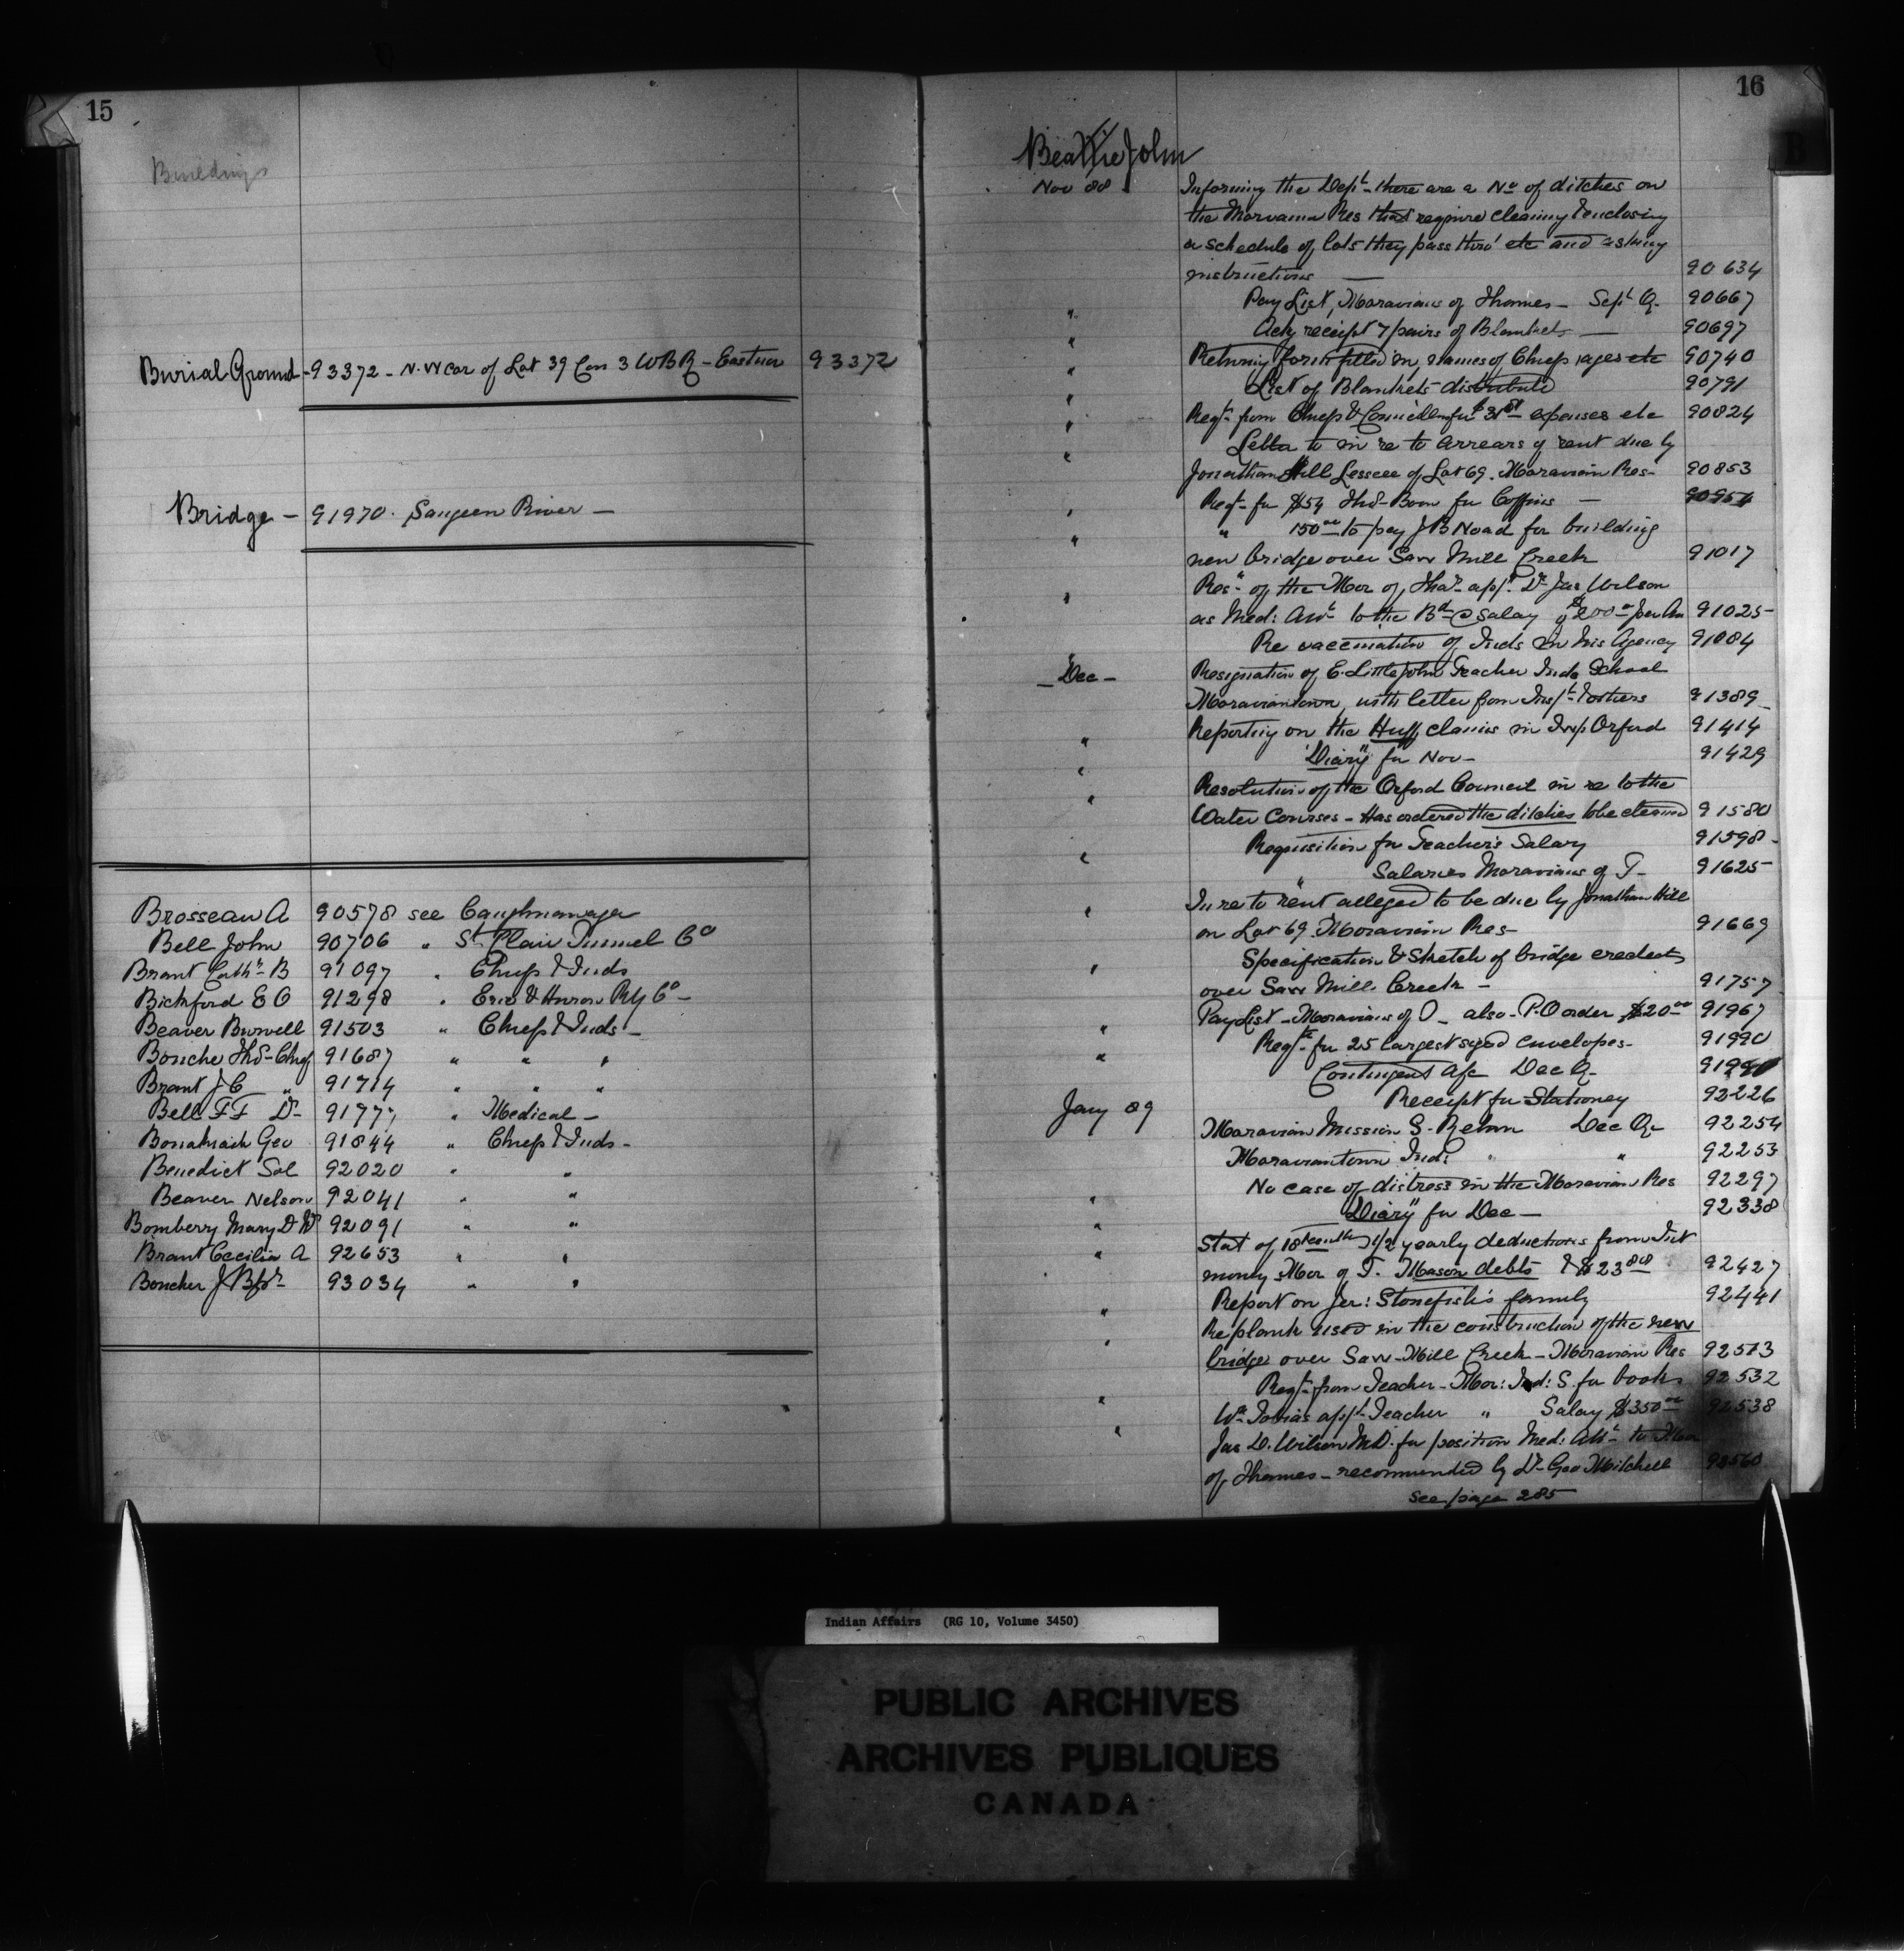 15
Buildings
Burial Ground - 93372 - N.W cor of Lot 39 Con 3 W B R - Eastnor 93372
Bridge - 91970. Saugeen River -
Brosseau A 90578 see Caughnawaga
Bell John 90706 " St. Clair Tunnel Co
Brant Cathn B 91097 " Chiefs & Inds
Bickford E O 91298 " Erie & Huron Rly Co -
Beaver Burwell 91503 " Chiefs & Inds -
Bouche Thos - Chief 91687 " " "
Brant J C " 91714 " " "
Bell F F Dr 91777 " Medical -
Geo 91844 " Chiefs & Inds -
Benedict Sol 92020 " "
Beaver Nelson 92041 " "
Bomberry Mary D 92091 " "
Brant Cecilia A 92653 " "
Boucher J Bpt 93034 " "
16
B
Beattie John
Nov 88 Informing the Dept there are a No of ditches on
the Moravian Res that require cleaning & enclosing
a schedule of lots they pass thro' etc and asking
instructions — 90634
" Pay List, Moravians of Thames - Sept Q. 90667
" Ack receipt 7 pairs of Blankets — 90697
" Returning form filled in, names of Chiefs, ages etc 90740
" List of Blankets distributed 90791
" Reqt from Chiefs & Councillors for expenses etc 90824
" Letter to in re to arrears of rent due by
Jonathan Hill Lessee of Lot 69. Moravian Res - 90853
" Reqt for $54 Thos Boon for Coffins — 90954
" " 150.00 to pay J B Noad for building
new bridge over Saw Mill Creek 91017
" Resn of the Mor of Tha. appt Dr Jas Wilson
as Med: Att to the Bd @ Salary of $200.00 per An 91025
Re vaccination of Inds in his Agency 91084
- Dec - Resignation of E. Littlejohn Teacher Inds School
Moraviantown, with letter from Inspt & others 91389
" Reporting on the Huff claims in Twp Orford 91414
" "Diary" for Nov - 91429
" Resolution of the Orford Council in re to the
Water Courses - Has ordered the ditches to be cleaned 91580
" Requisition for Teacher's Salary 91598
" Salaries Moravians of T - 91625
" In re to rent alleged to be due by Jonathan Hill
on Lot 69. Moravian Res - 91669
" Specification & Sketch of bridge erected
over Saw Mill Creek - 91757
" Pay List - Moravians of - also - P.O order $20.00 91967
" Reqt for 25 largest sized envelopes - 91990
Contingent a/c Dec Q -
Jany 89 Receipt for Stationery 92226
Moravian Mission S. Return Dec Qr 92254
Moraviantown Ind: " " 92253
" No case of distress in the Moravian Res 92297
" "Diary" for Dec — 92338
" Stat of 1/2 yearly deductions from Int
money Mor of T. Mason debts & $23.88 92427
" Report on Jer: Stonefish's family 92441
" Re plank used in the construction of the new
bridge over Saw-Mill Creek - Moravian Res 92513
Reqt from Teacher - Mor: Ind: S. for books 92532
" Wm Tobias appt Teacher " Salary $350.00 92538
" Jas D. Wilson M.D. for position Med: Att to Mor
of Thames - recommended by Dr Geo Mitchell
see page 285
Indian Affairs (RG 10, Volume 3450)
PUBLIC ARCHIVES
ARCHIVES PUBLIQUES
CANADA